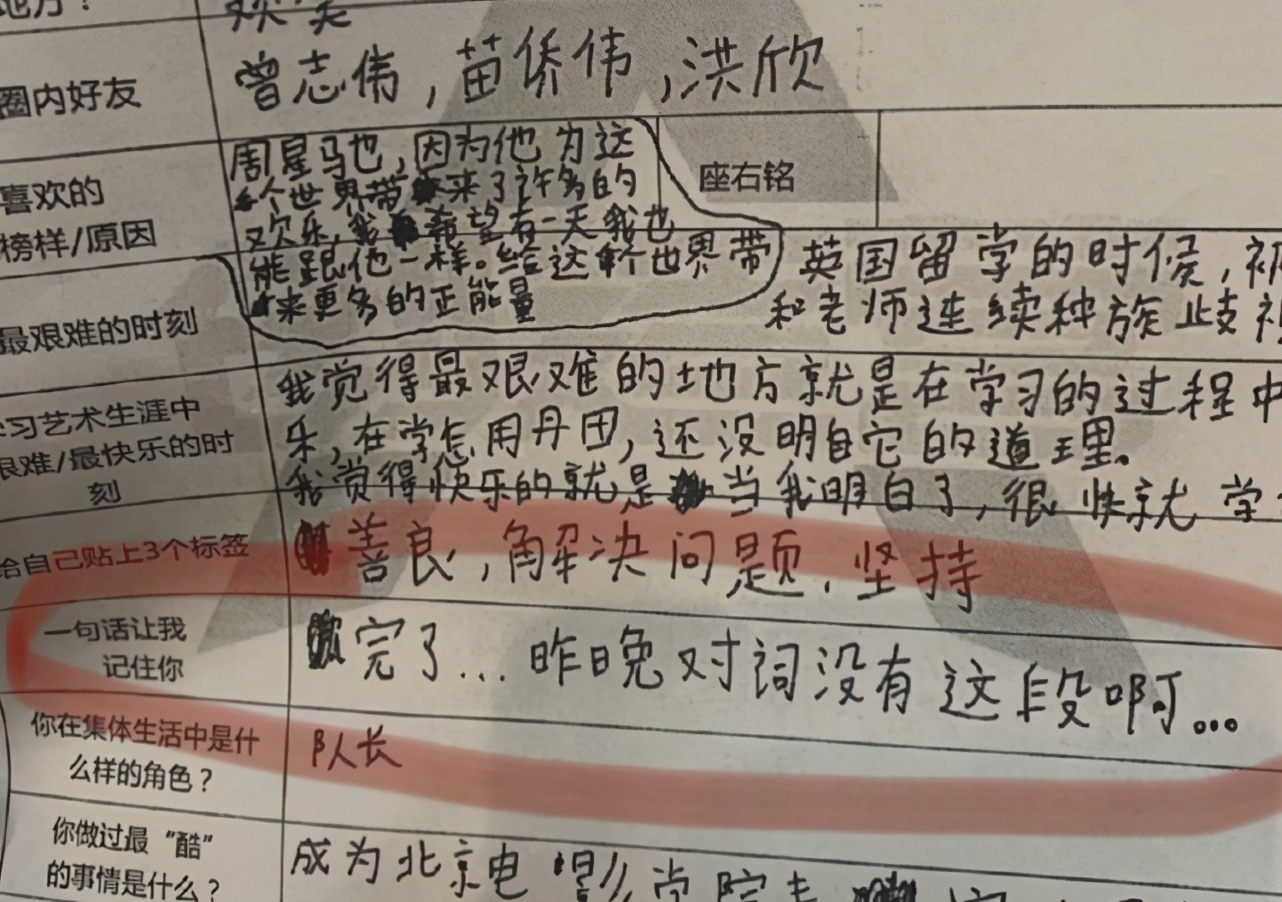 地方？
欢笑
圈内好友
曾志伟，苗侨伟，洪欣
喜欢的
榜样/原因
周星马也，因为他为这
个世界带来了许多的
欢乐，我希望有一天我也
能跟他一样。给这个世界带
来更多的正能量
座右铭
最艰难的时刻
英国留学的时候，被
和老师连续种族歧视
学习艺术生涯中
艰难/最快乐的时
刻
我觉得最艰难的地方就是在学习的过程中
乐，在学怎用丹田，还没明白它的道理。
我觉得快乐的就是当我明白了，很快就学
给自己贴上3个标签
善良，解决问题，坚持
一句话让我
记住你
完了...昨晚对词没有这段啊...
你在集体生活中是什
么样的角色？
队长
你做过最“酷”
的事情是什么？
成为北京电影学院